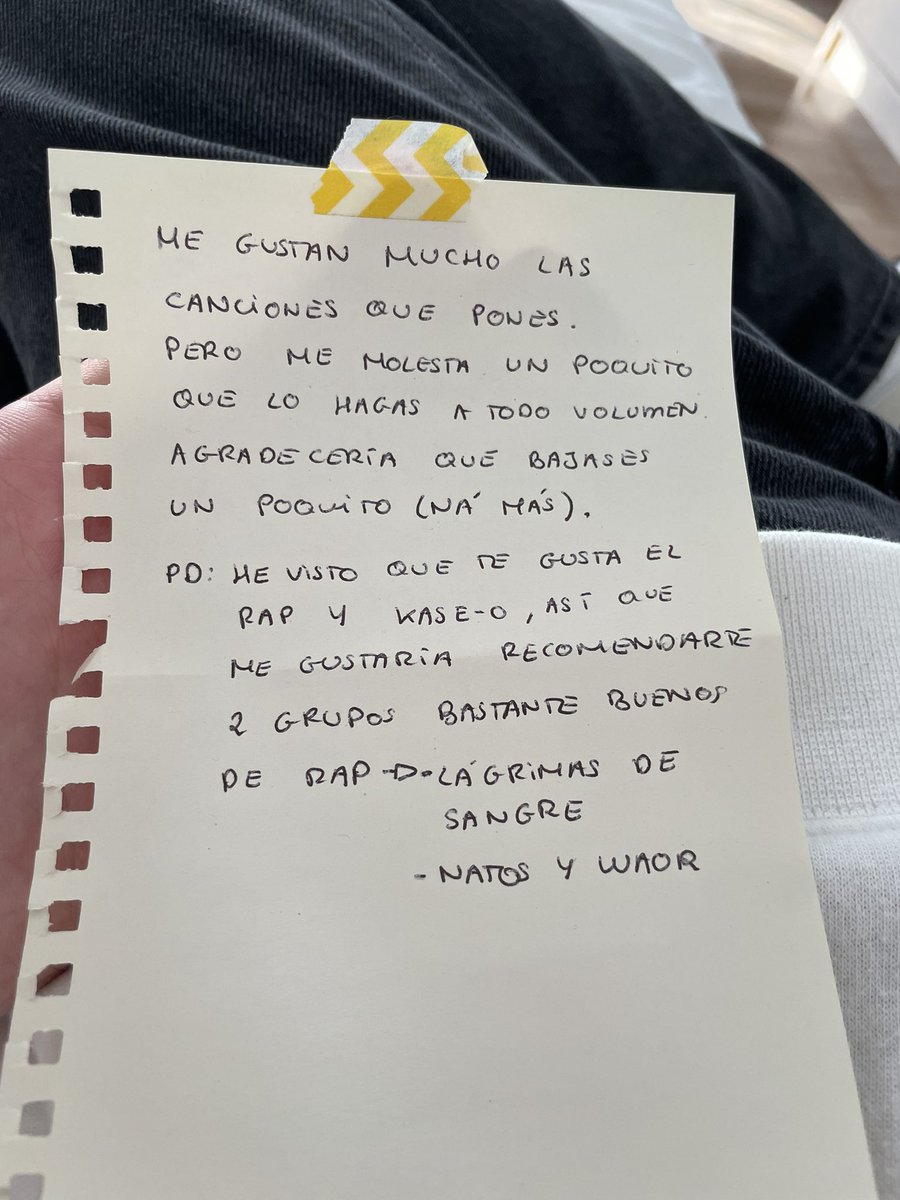 ME GUSTAN MUCHO LAS
CANCIONES QUE PONES.
PERO ME MOLESTA UN POQUITO
QUE LO HAGAS A TODO VOLUMEN.
AGRADECERÍA QUE BAJASES
UN POQUITO (NÁ MÁS).
PD: HE VISTO QUE TE GUSTA EL
RAP Y KASE-O, ASÍ QUE
ME GUSTARÍA RECOMENDARTE
2 GRUPOS BASTANTE BUENOS
DE RAP → • LÁGRIMAS DE
SANGRE
- NATOS Y WAOR